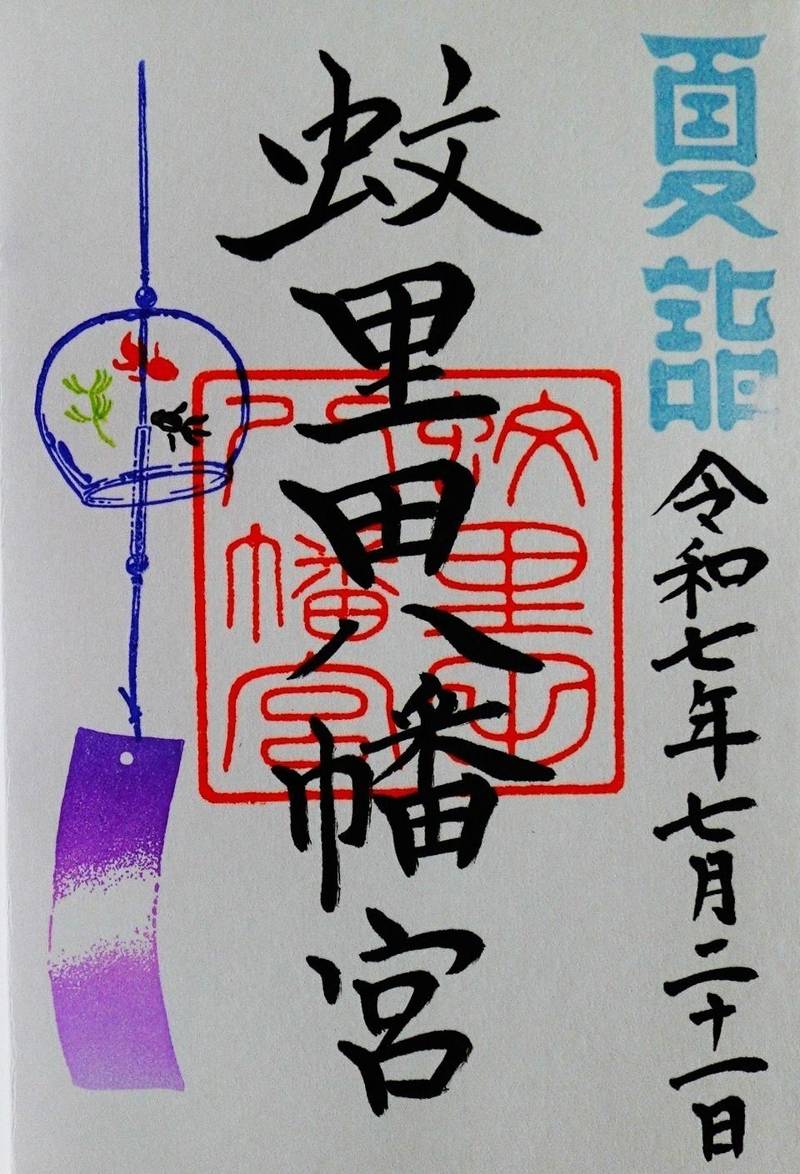 夏詣
令和七年七月二十一日
蚊里田八幡宮
蚊里田
八幡宮